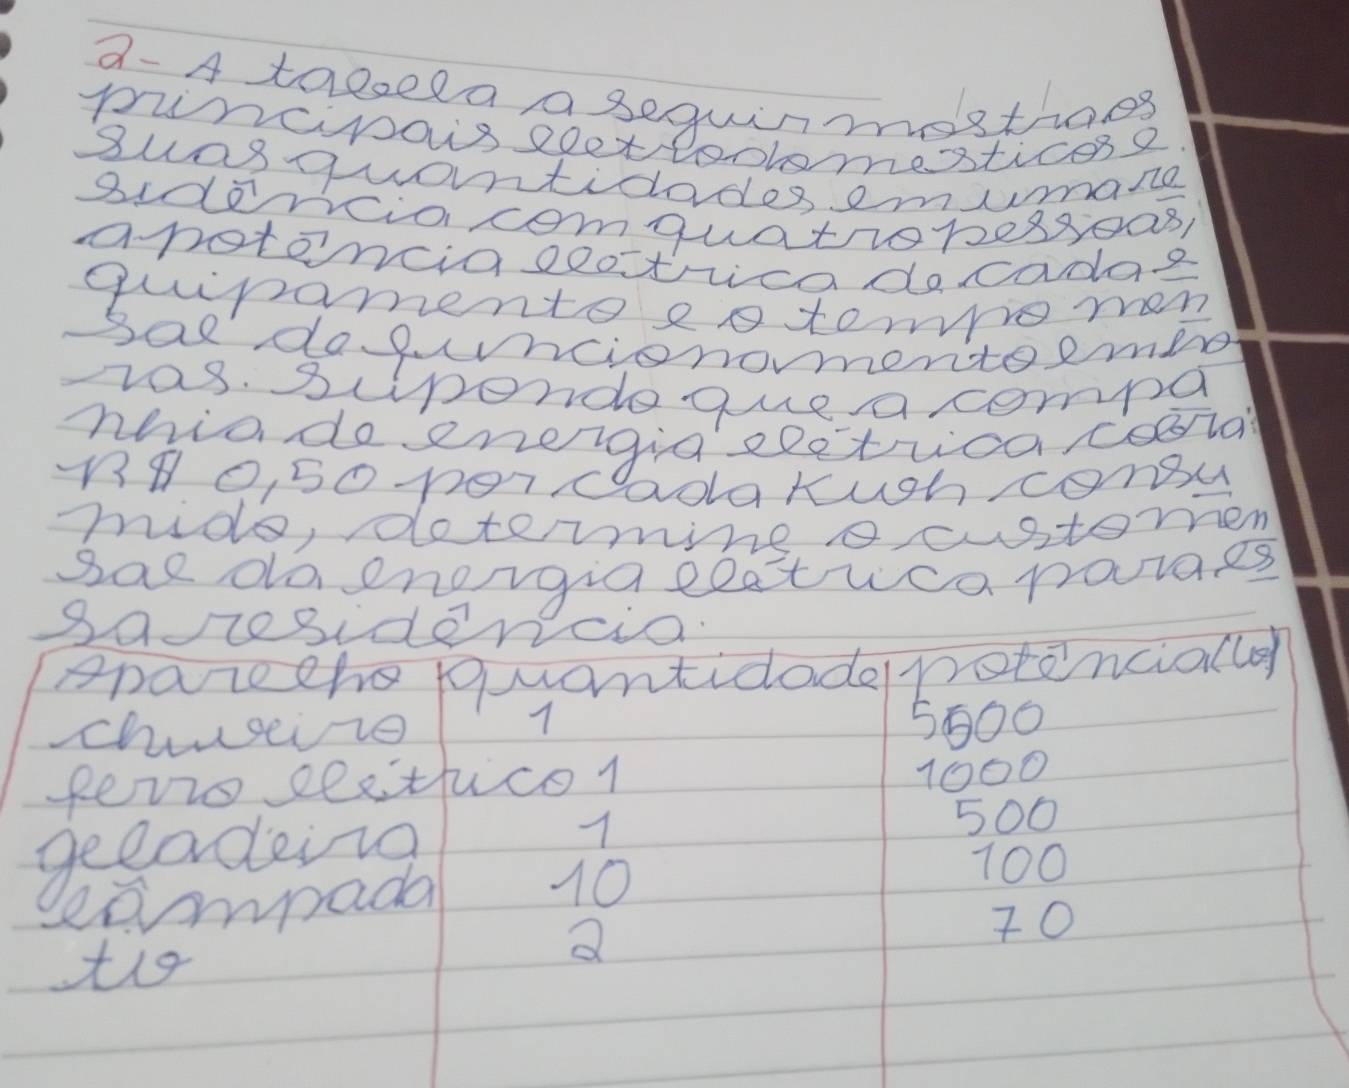 2- A tabela a seguir mostra os
principais eletrodomésticos e
suas quantidades em uma re
sidência com quatro pessoas,
a potência elétrica de cada e
quipamento e o tempo men
sal de funcionamento em ho
ras. Supondo que a compa
nhia de energia elétrica cobra
R$ 0,50 por cada Kwh consu
mido, determine o custo men
sal da energia elétrica para es
sa residência.
Aparelho quantidade potência (w)
chuveiro 1 5500
ferro elétrico 1 1000
geladeira 1 500
lâmpada 10 100
tv 2 70